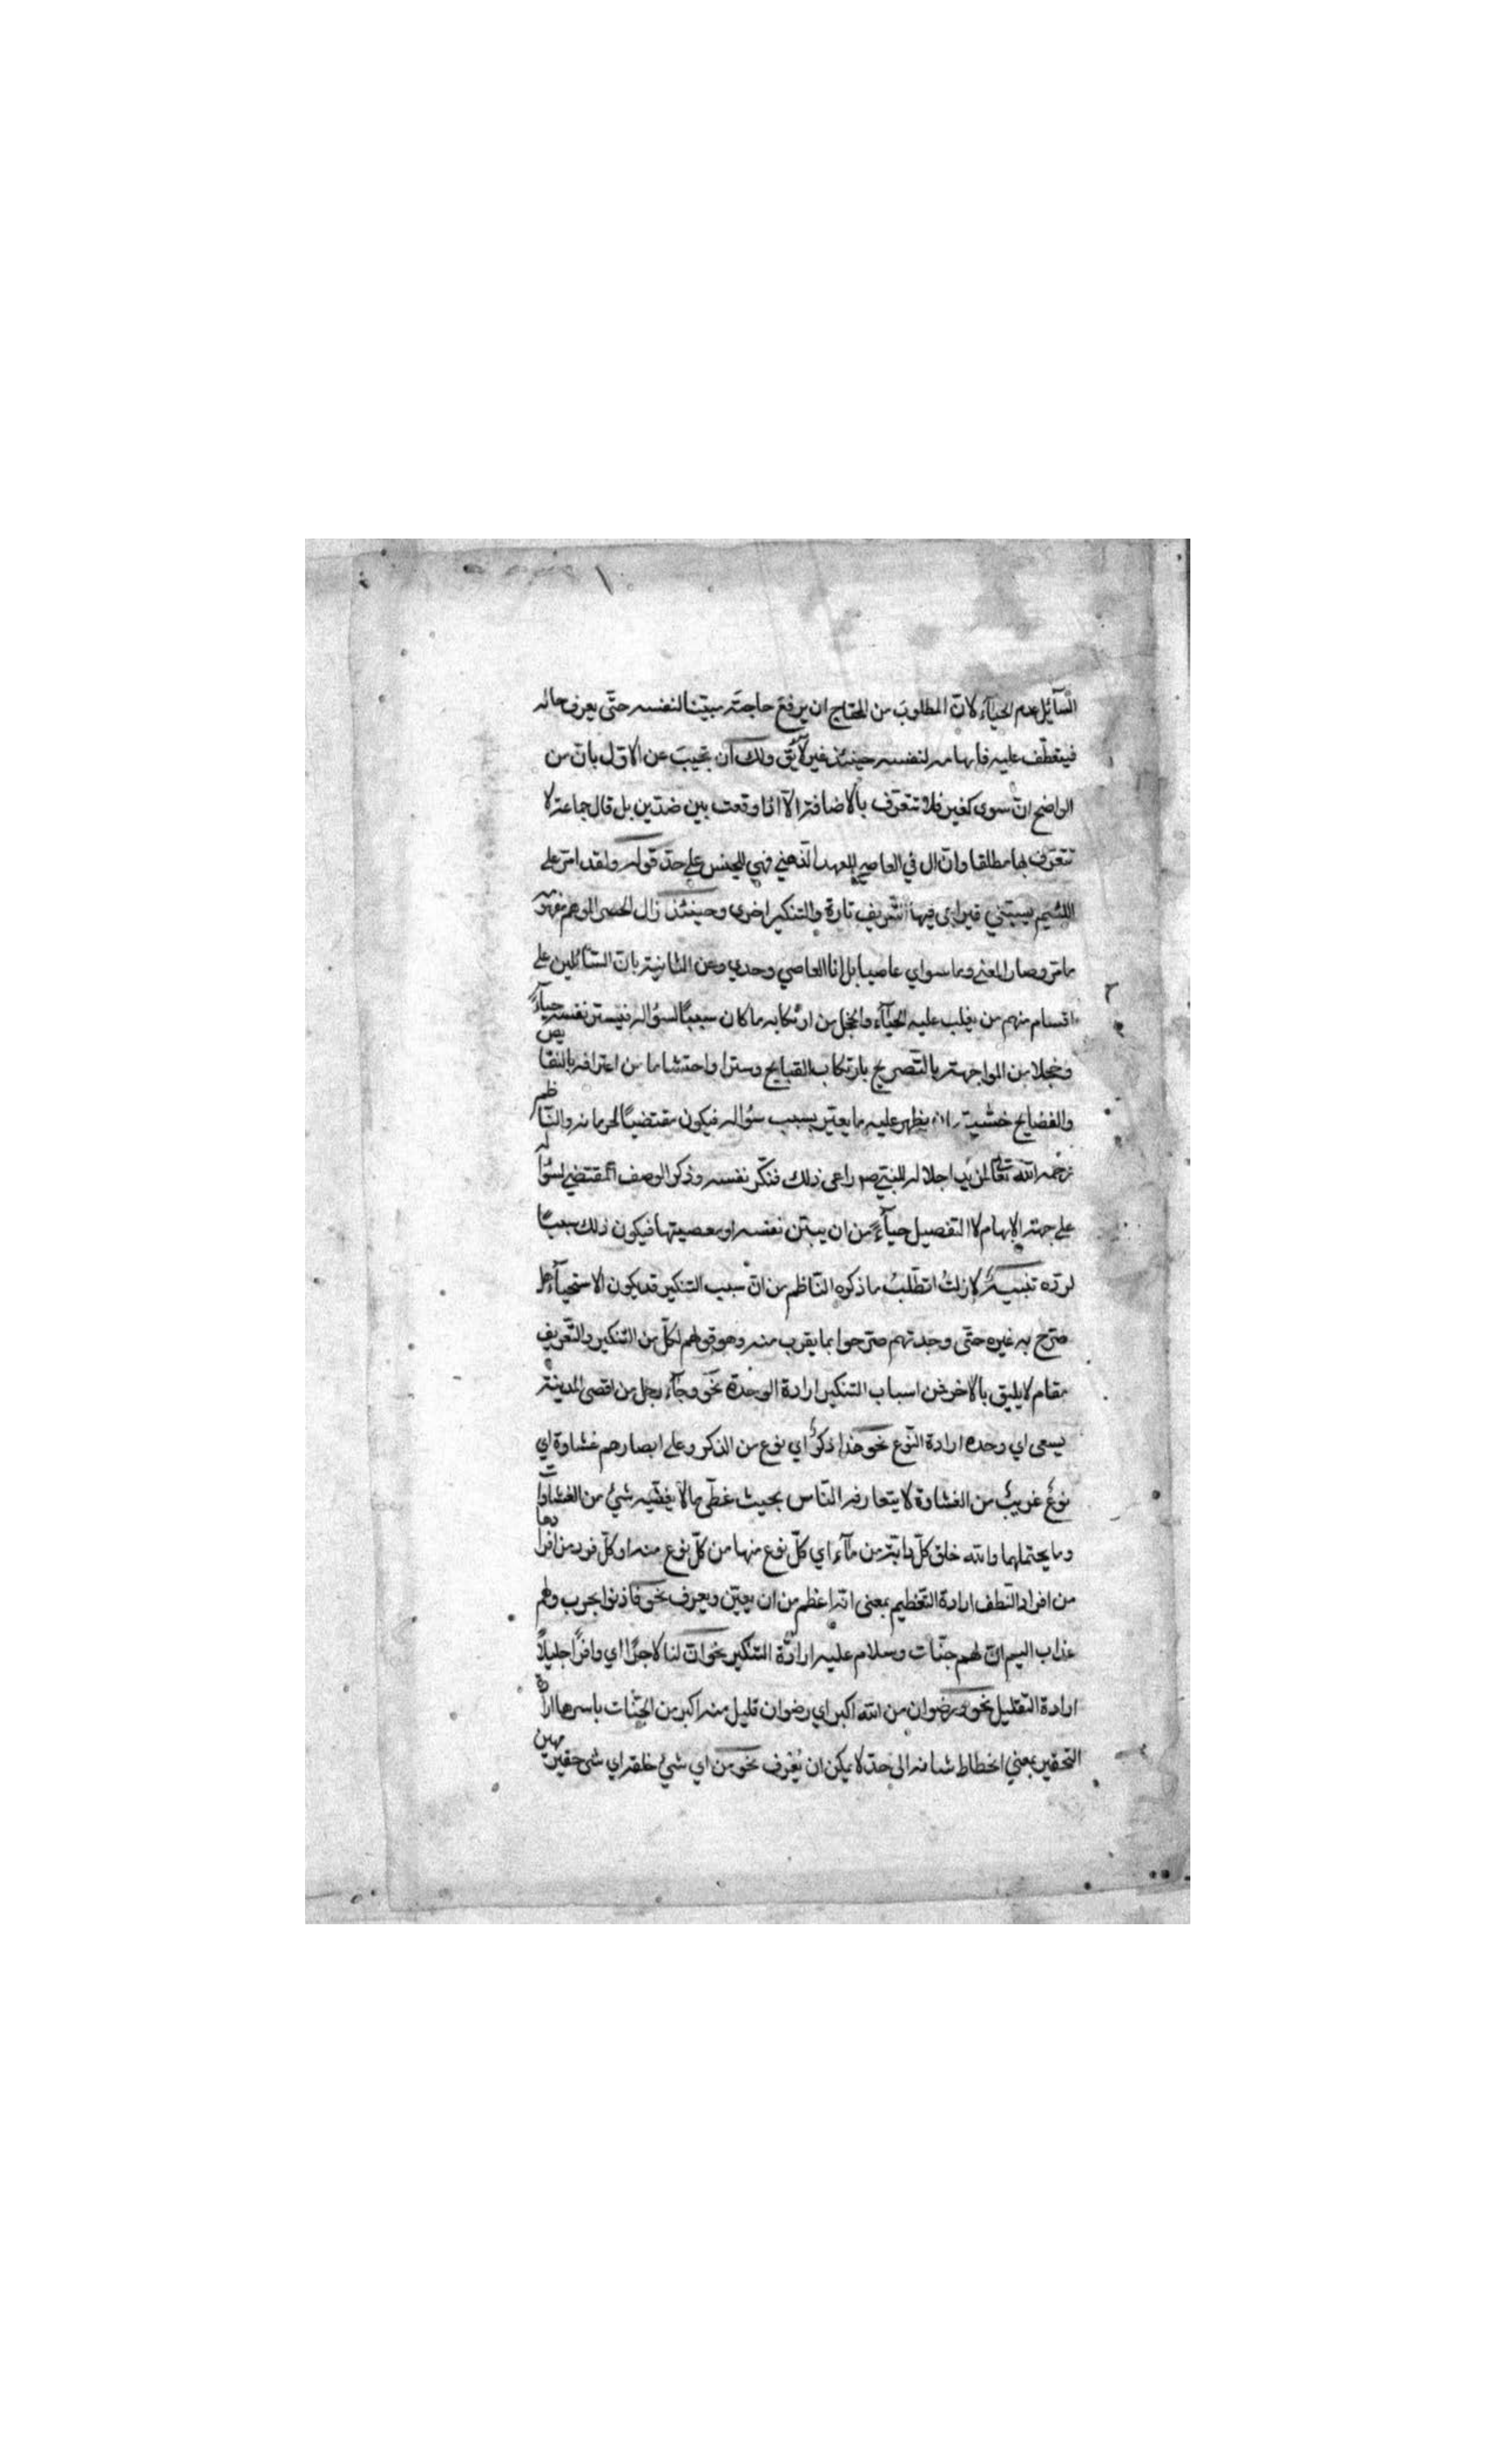 السآئل عدم الحيآء لانّ المطلوب من المحتاج ان يرفع حاجته مبيّنا لنفسه حتّى يعرف حاله
فيتعطّف عليه فابهامه لنفسه حينئذ غير لايق ولك ان تجيب عن الاوّل بانّ من
الواضح انّ سوى كغير فلا تتعرّف بالاضافة الّا اذا وقعت بين ضدّين بل قال جماعة لا
تتعرّف بها مطلقا وانّ ال في العاصي للعهد الذهني فهي للجنس على حدّ قوله ولقد امرّ على
اللئيم يسبّني فيراعى فيها التعريف تارة والتنكير اخرى وحينئذ زال الحصر الموهم
مامرّ وصار المعنى وما سواي عاصيا بل انا العاصي وحدي وعن الثانية بانّ السّآئلين على
اقسام منهم من يغلب عليه الحيآء والخجل من ارتكابه ما كان سببًا لسؤاله فيستر نفسه حيآءً
وخجلا من المواجهة بالتّصريح بارتكاب القبايح وسترا واحتشاما من اعترافه بالنقايص
والفضايح خشية ان يظهر عليه ما بسبب سؤاله فيكون مقتضيًا لحرمانه والنّاظم
رحمه الله تعالى اجلاله للنبيّ صم راعى ذلك فنكّر نفسه وذكر الوصف المقتضي لسؤاله
على جهة الابهام لا التفصيل حيآءً من ان يبيّن نفسه او معصيتها فيكون ذلك سببًا
لردّه تنبيهٌ لا زلتُ اتطلّبُ ما ذكره النّاظم من انّ سبب التنكير قد يكون الاستحيآء هل
صرّح به غيره حتّى وجدتهم صرّحوا بما يقرب منه وهو قولهم لكلّ من التنكير والتّعريف
مقام لا يليق بالاخر فمن اسباب التنكير ارادة الوحدة نحو وجآء رجل من اقصى المدينة
يسعى اي وحده ارادة النّوع نحو هذا ذكرٌ اي نوع من الذكر وعلى ابصارهم غشاوة اي
نوعٌ غريبٌ من الغشاوة لا يتعارفه النّاس بحيث غطّى ما لا يغطّيه شيٌ من الغشاوات
وما يحتملهما والله خلق كلّ دابّة من مآء اي كلّ نوع منها من كلّ نوع منه او كلّ فرد من افرادها
من افراد النّطف ارادة التّعظيم بمعنى انّه اعظم من ان يعيّن ويعرف نحو فاذنوا بحرب ولهم
عذاب اليم انّ لهم جنّات وسلام عليه ارادة التنكير نحو انّ لنا لاجرًا اي وافرًا جليلًا
ارادة التّقليل نحو ورضوان من الله اكبر اي رضوان قليل منه اكبر من الجنّات باسرها ارادة
التحقير بمعنى انحطاط شانه الى حدّ لا يمكن ان يُعْرف نحو من اي شيٌ خلقه اي شي حقير مهين